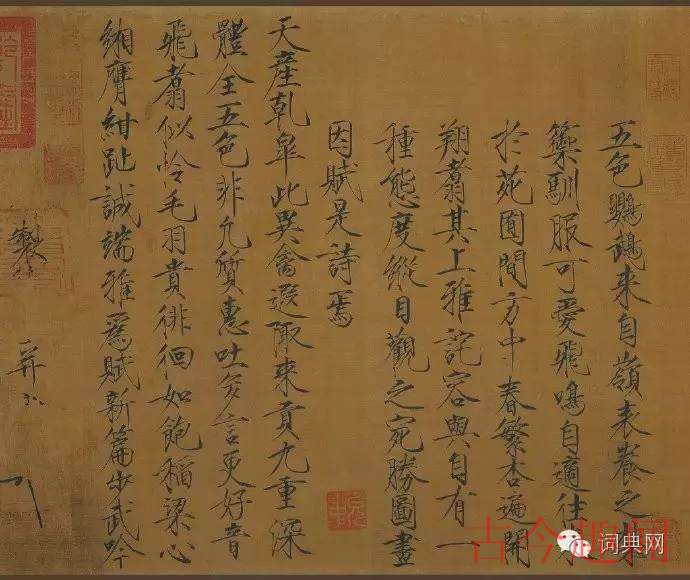 五色鸚鵡來自嶺表養之禁
籞馴服可愛飛鳴自適往來
於苑囿間方中春繁杏遍開
翔翥其上雅詫容與自有一
種態度縱目觀之宛勝圖畫
因賦是詩焉
天產乾皐此異禽遐陬來貢九重深
體全五色非凡質惠吐多言更好音
飛翥似怜毛羽貴徘徊如飽稻粱心
緗膺紺趾誠端雅爲賦新篇步武吟
製
并
词典网